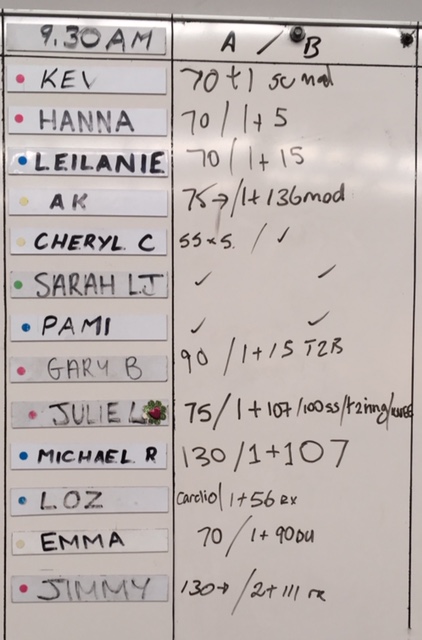 9.30AM A / B
KEV 70 + 1
HANNA 70 / 1 + 5
LEILANIE 70 / 1 + 15
AK 75→/1+136mod
CHERYL C 55x5. / ✓
SARAH LJ ✓ ✓
PAMI ✓ ✓
GARY B 90 / 1+15 T2B
JULIE L 75/1+107/100ss/
MICHAEL R 130/1+107
LOZ Cardio/1+56 RX
EMMA 70 / 1+90DU
JIMMY 130→/2+111 rx